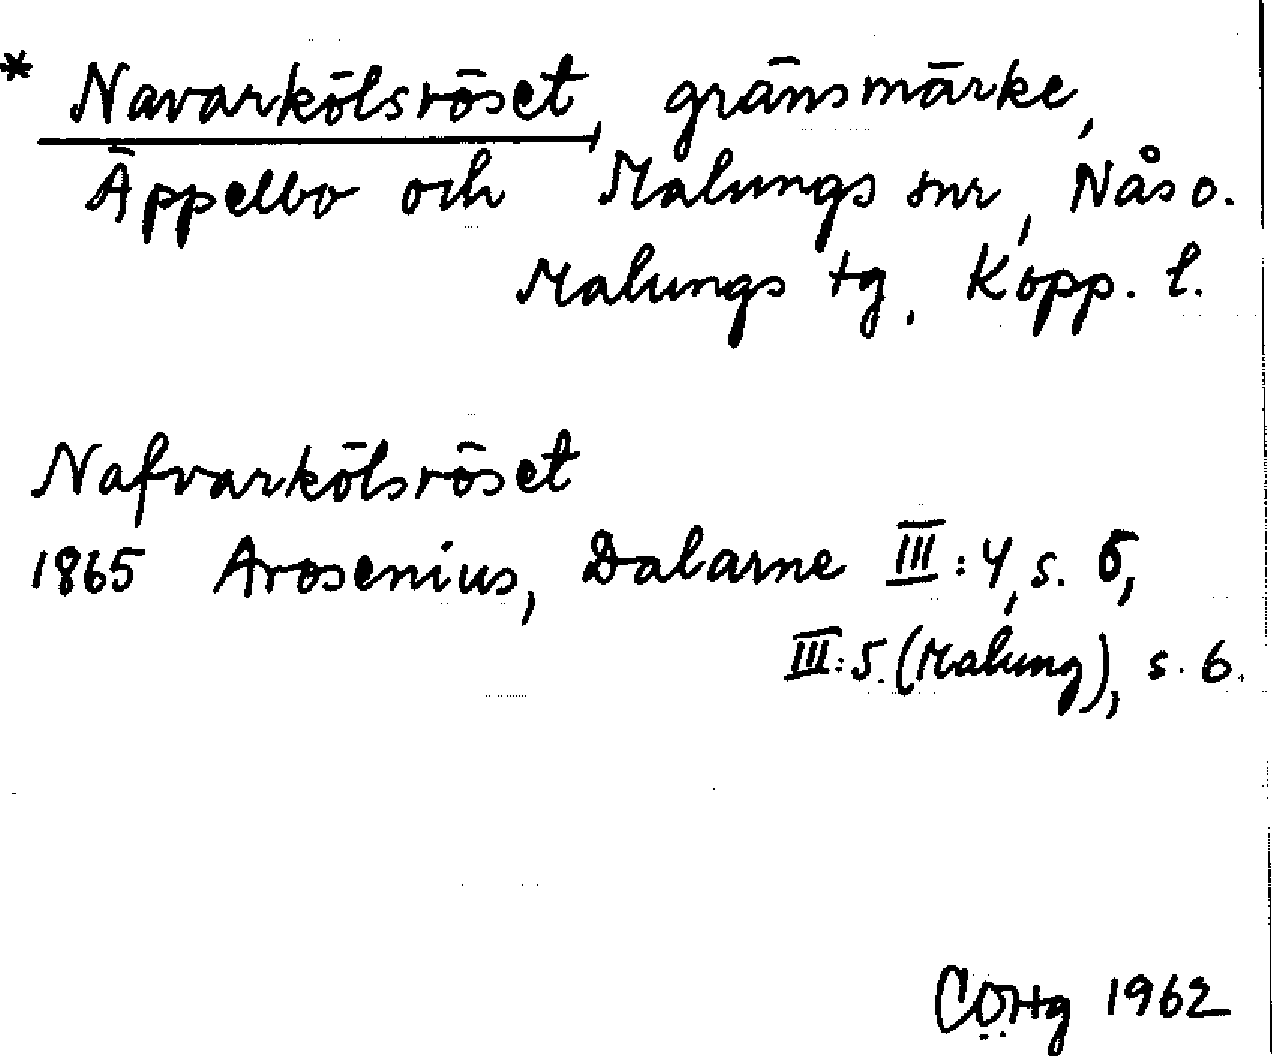 * Navarkölsröset, gränsmärke,
Äppelbo och Malungs snr, Nås o.
Malungs tg, Kopp. l.
Nafvarkölsröset
1865 Arosenius, Dalarne III:4, s. 5,
III:5. (Malung), s. 6.
1962